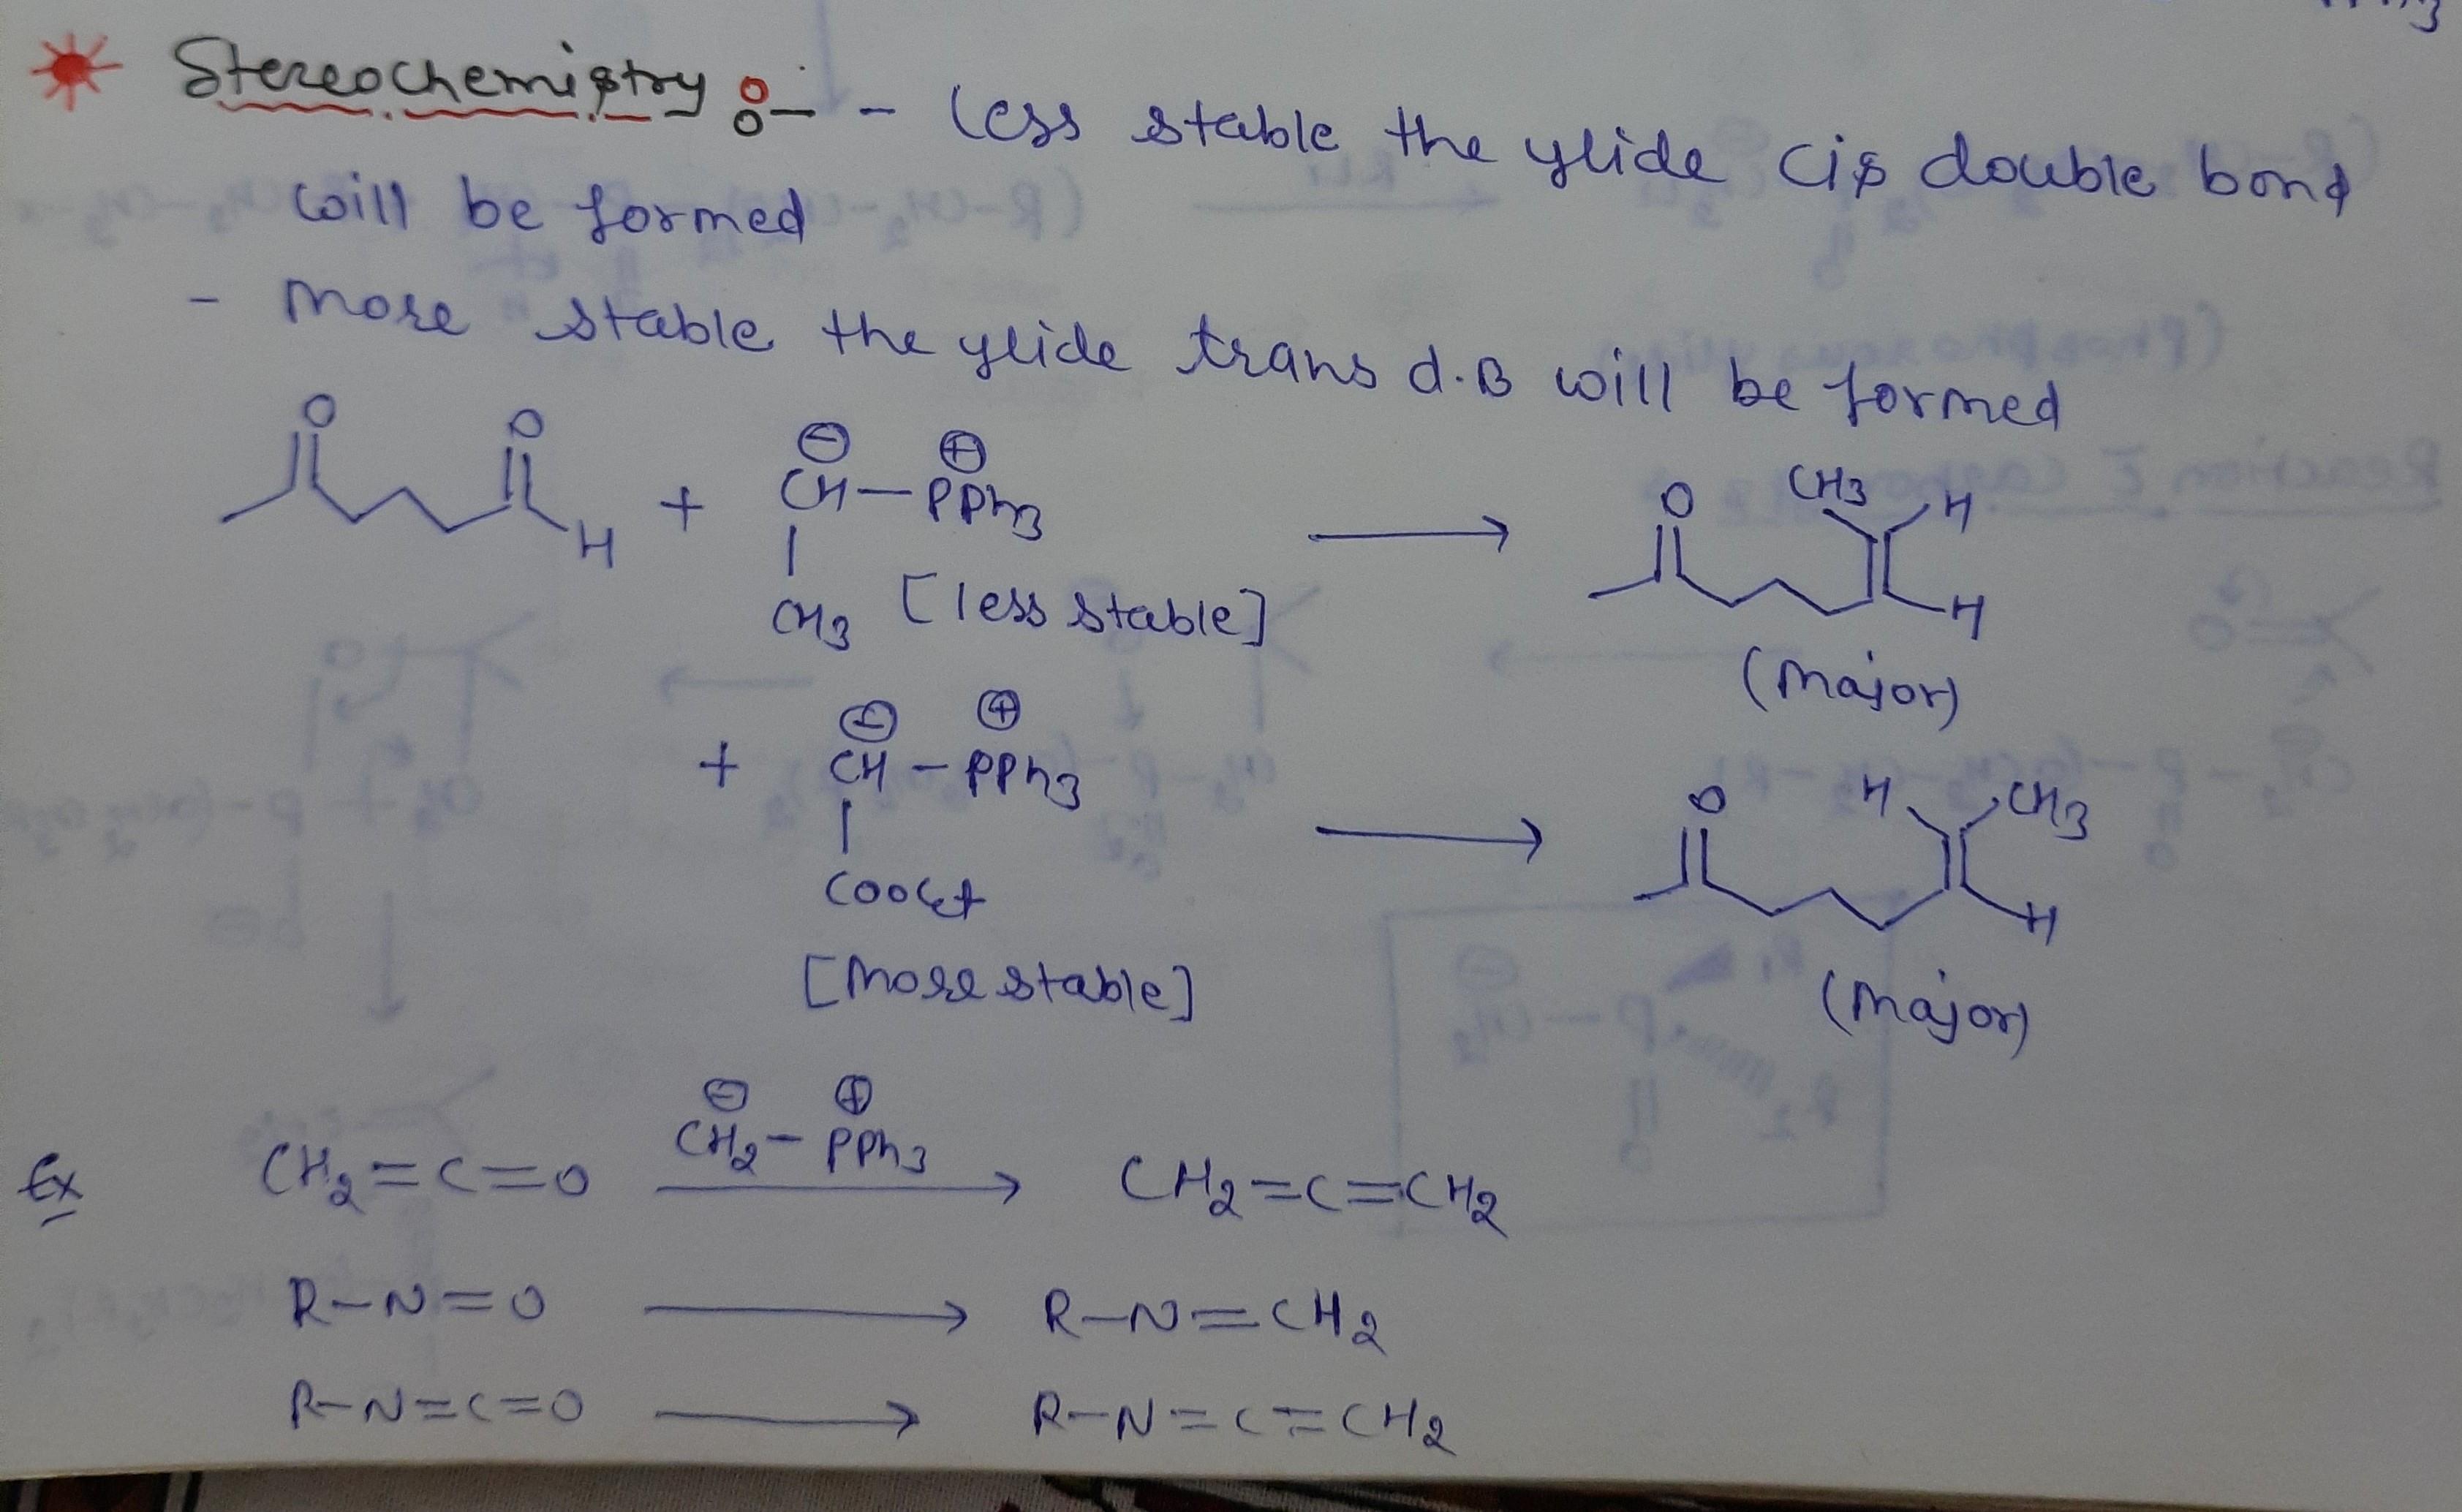 Stereochemistry :- - less stable the ylide cis double bond
will be formed
- more stable the ylide trans d.B will be formed
O O H + CH⊖-PPh3⊕ CH3 → O CH3 H H
[less stable]
(Major)
+ CH⊖-PPh3⊕ COOEt → O H CH3 H
[More stable]
(Major)
Ex CH2=C=O CH2⊖-PPh3⊕ → CH2=C=CH2
R-N=O → R-N=CH2
R-N=C=O → R-N=C=CH2